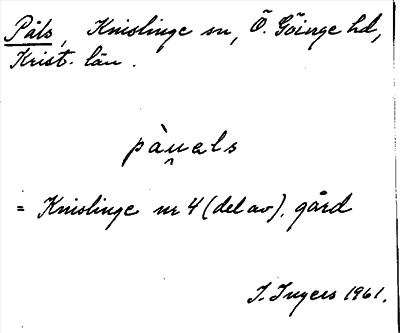 Påls, Knislinge sn, Ö. Göinge hd,
Krist. län.
pàu̯əls
= Knislinge nr 4 (del av). gård
I. Ingers 1961.